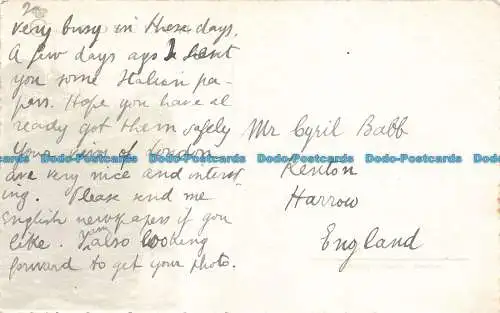 2
very busy in these days.
A few days ago I sent
you some Italian pa-
pers. Hope you have al
ready got them safely
Your view of London
are very nice and interest
ing. Please send me
English newspapers if you
like. I am also looking
forward to get your photo.
Mr Cyril Babb
Kenton
Harrow
England
Dodo-Postcards Dodo-Postcards Dodo-Postcards Dodo-Postcards Dodo-Postcards